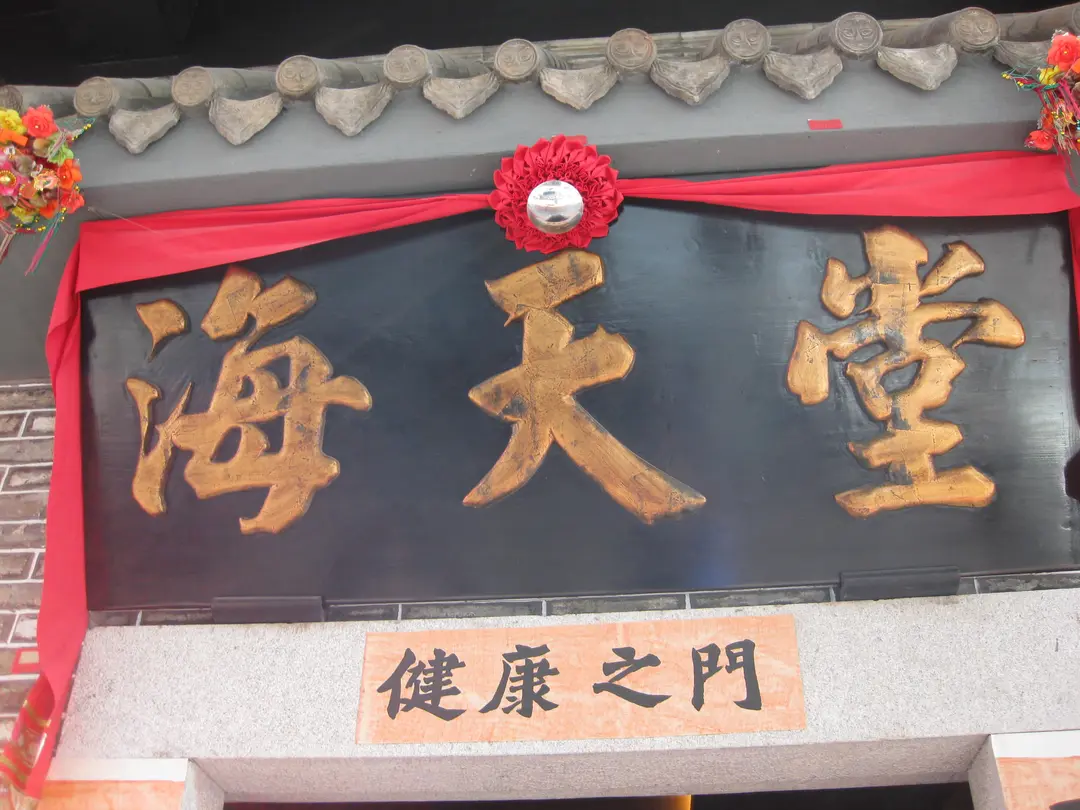 海天堂
健康之門